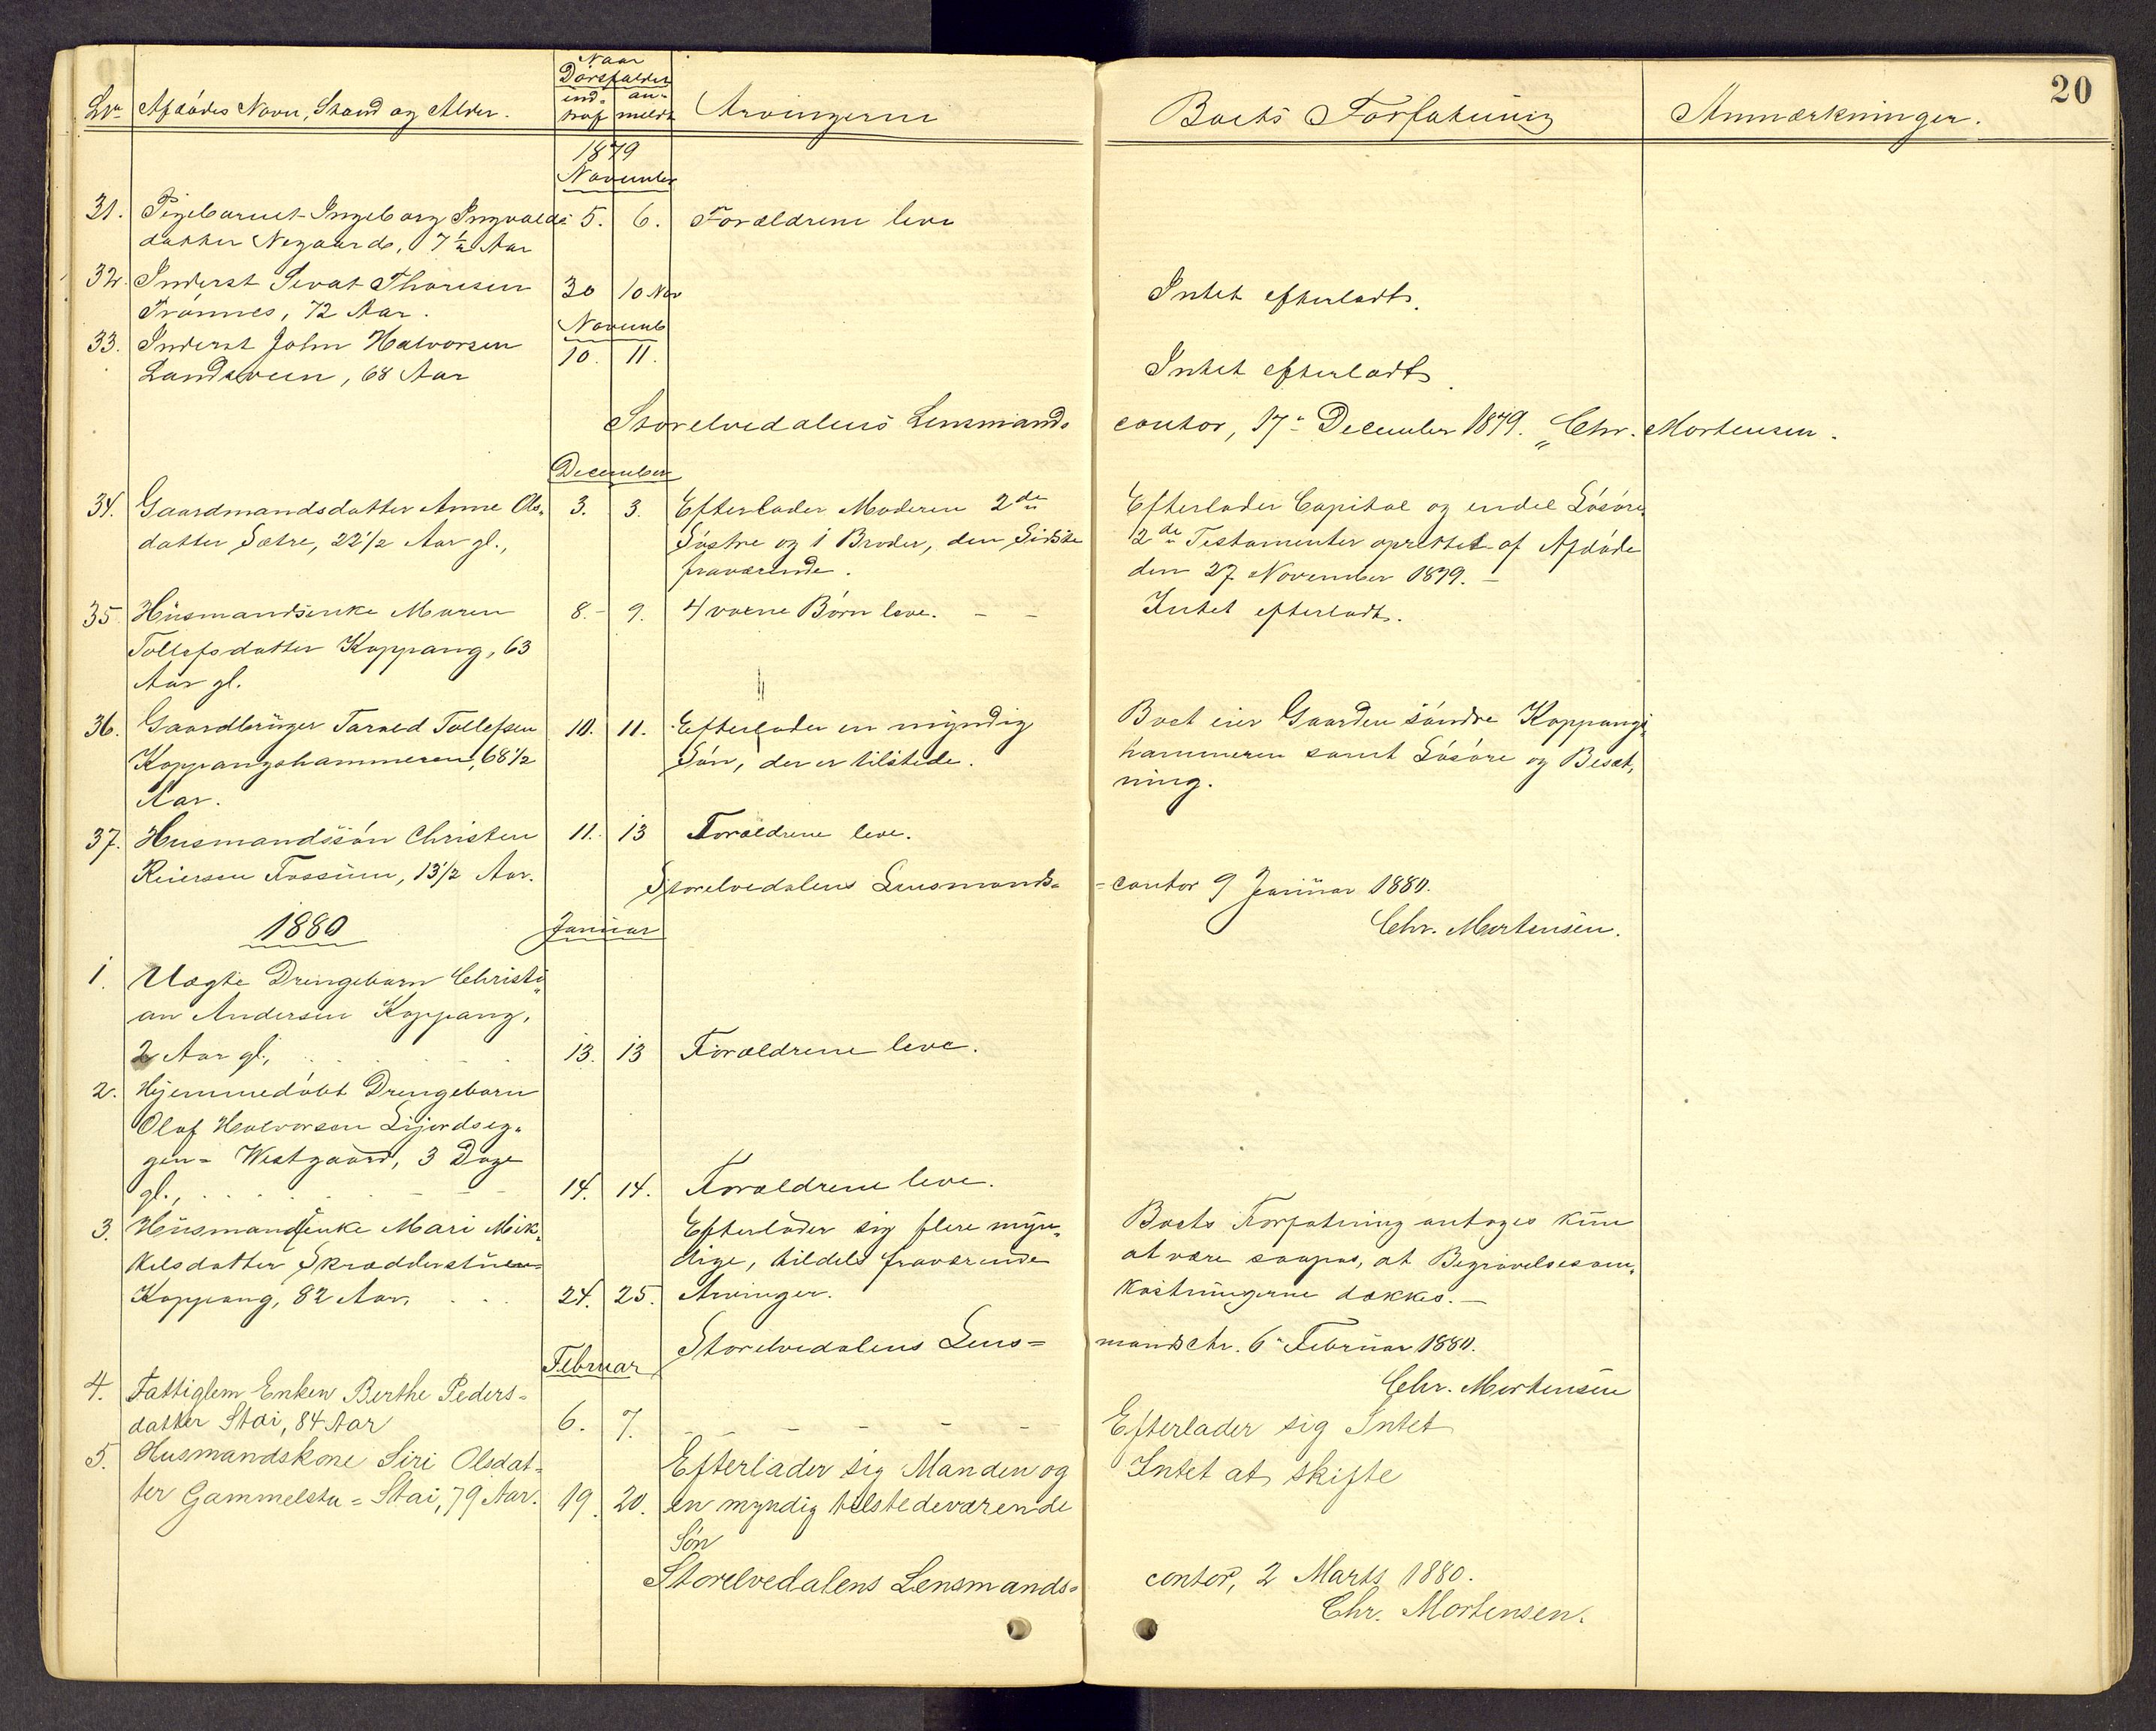 20
Naar
Dødsfaldet
Lnr Afdødes Navn, Stand og Alder. ind- an- Arvingerne Boets Forfatning Anmærkninger.
traf meldt
1879
November
31. Pigebarnet Ingeborg Ingvalds- 5. 6. Forældrene leve
datter Negaard, 7 1/2 Aar
32. Inderst Sivat Thoresen 30 10 Nov Intet efterladt.
Trønnes, 72 Aar.
Novemb
33. Inderst John Halvorsen 10. 11. Intet efterladt
Landsveen, 68 Aar
Storelvedalens Lensmands contor, 17. December 1879. Chr. Mortensen.
December
34. Gaardmandsdatter Anne Ols- 3. 3. Efterlader Moderen 2de Efterlader Capital og endel Løsøre,
datter Sætre, 22 1/2 Aar gl., Søstre og 1 Broder, den Sidste 2de Testamenter oprettet af Afdøde
fraværende. den 27 November 1879. –
35. Husmandsenke Maren 8. 9. 4 voxne Børn leve. – – Intet efterladt.
Tollefsdatter Koppang, 63
Aar gl.
36. Gaardbruger Tarald Tollefsen 10. 11. Efterlader en myndig Boet eier Gaarden søndre Koppangs-
Koppangshammeren, 68 1/2 Søn, der er tilstede. hammeren samt Løsøre og Besæt-
Aar. ning.
37. Husmandssøn Christen 11. 13 Forældrene leve.
Reiersen Fossum, 13 1/2 Aar. Storelvedalens Lensmands- -contor 9 Januar 1880.
1880 Januar Chr. Mortensen.
1. Uægte Drengebarn Christi-
an Andersen Koppang,
2 Aar gl., 13. 13 Forældrene leve.
2. Hjemmedøbt Drengebarn
Olaf Halvorsen
gen- Westgaard, 3 Dage
gl., 14. 14. Forældrene leve.
3. Husmandsenke Mari Mik- Efterlader sig flere myn- Boets Forfatning antages kun
kelsdatter Skrædderstuen- dige, tildels fraværende at være saapas, at Begravelsesom-
Koppang, 82 Aar, 24. 25. Arvinger. kostningerne dækkes. –
Storelvedalens Lens= mandsctr. 6. Februar 1880.
Februar Chr. Mortensen
4. Fattiglem Enken Berthe Peders- 6. 7. – – – – – Efterlader sig Intet
datter Stai, 84 Aar
5. Husmandskone Siri Olsdat- Efterlader sig Manden og Intet at skifte
ter Gammelstu = Stai, 79 Aar. 19. 20. en myndig tilstedeværende
Søn
Storelvedalens Lensmands- contor, 2 Marts 1880.
Chr. Mortensen.